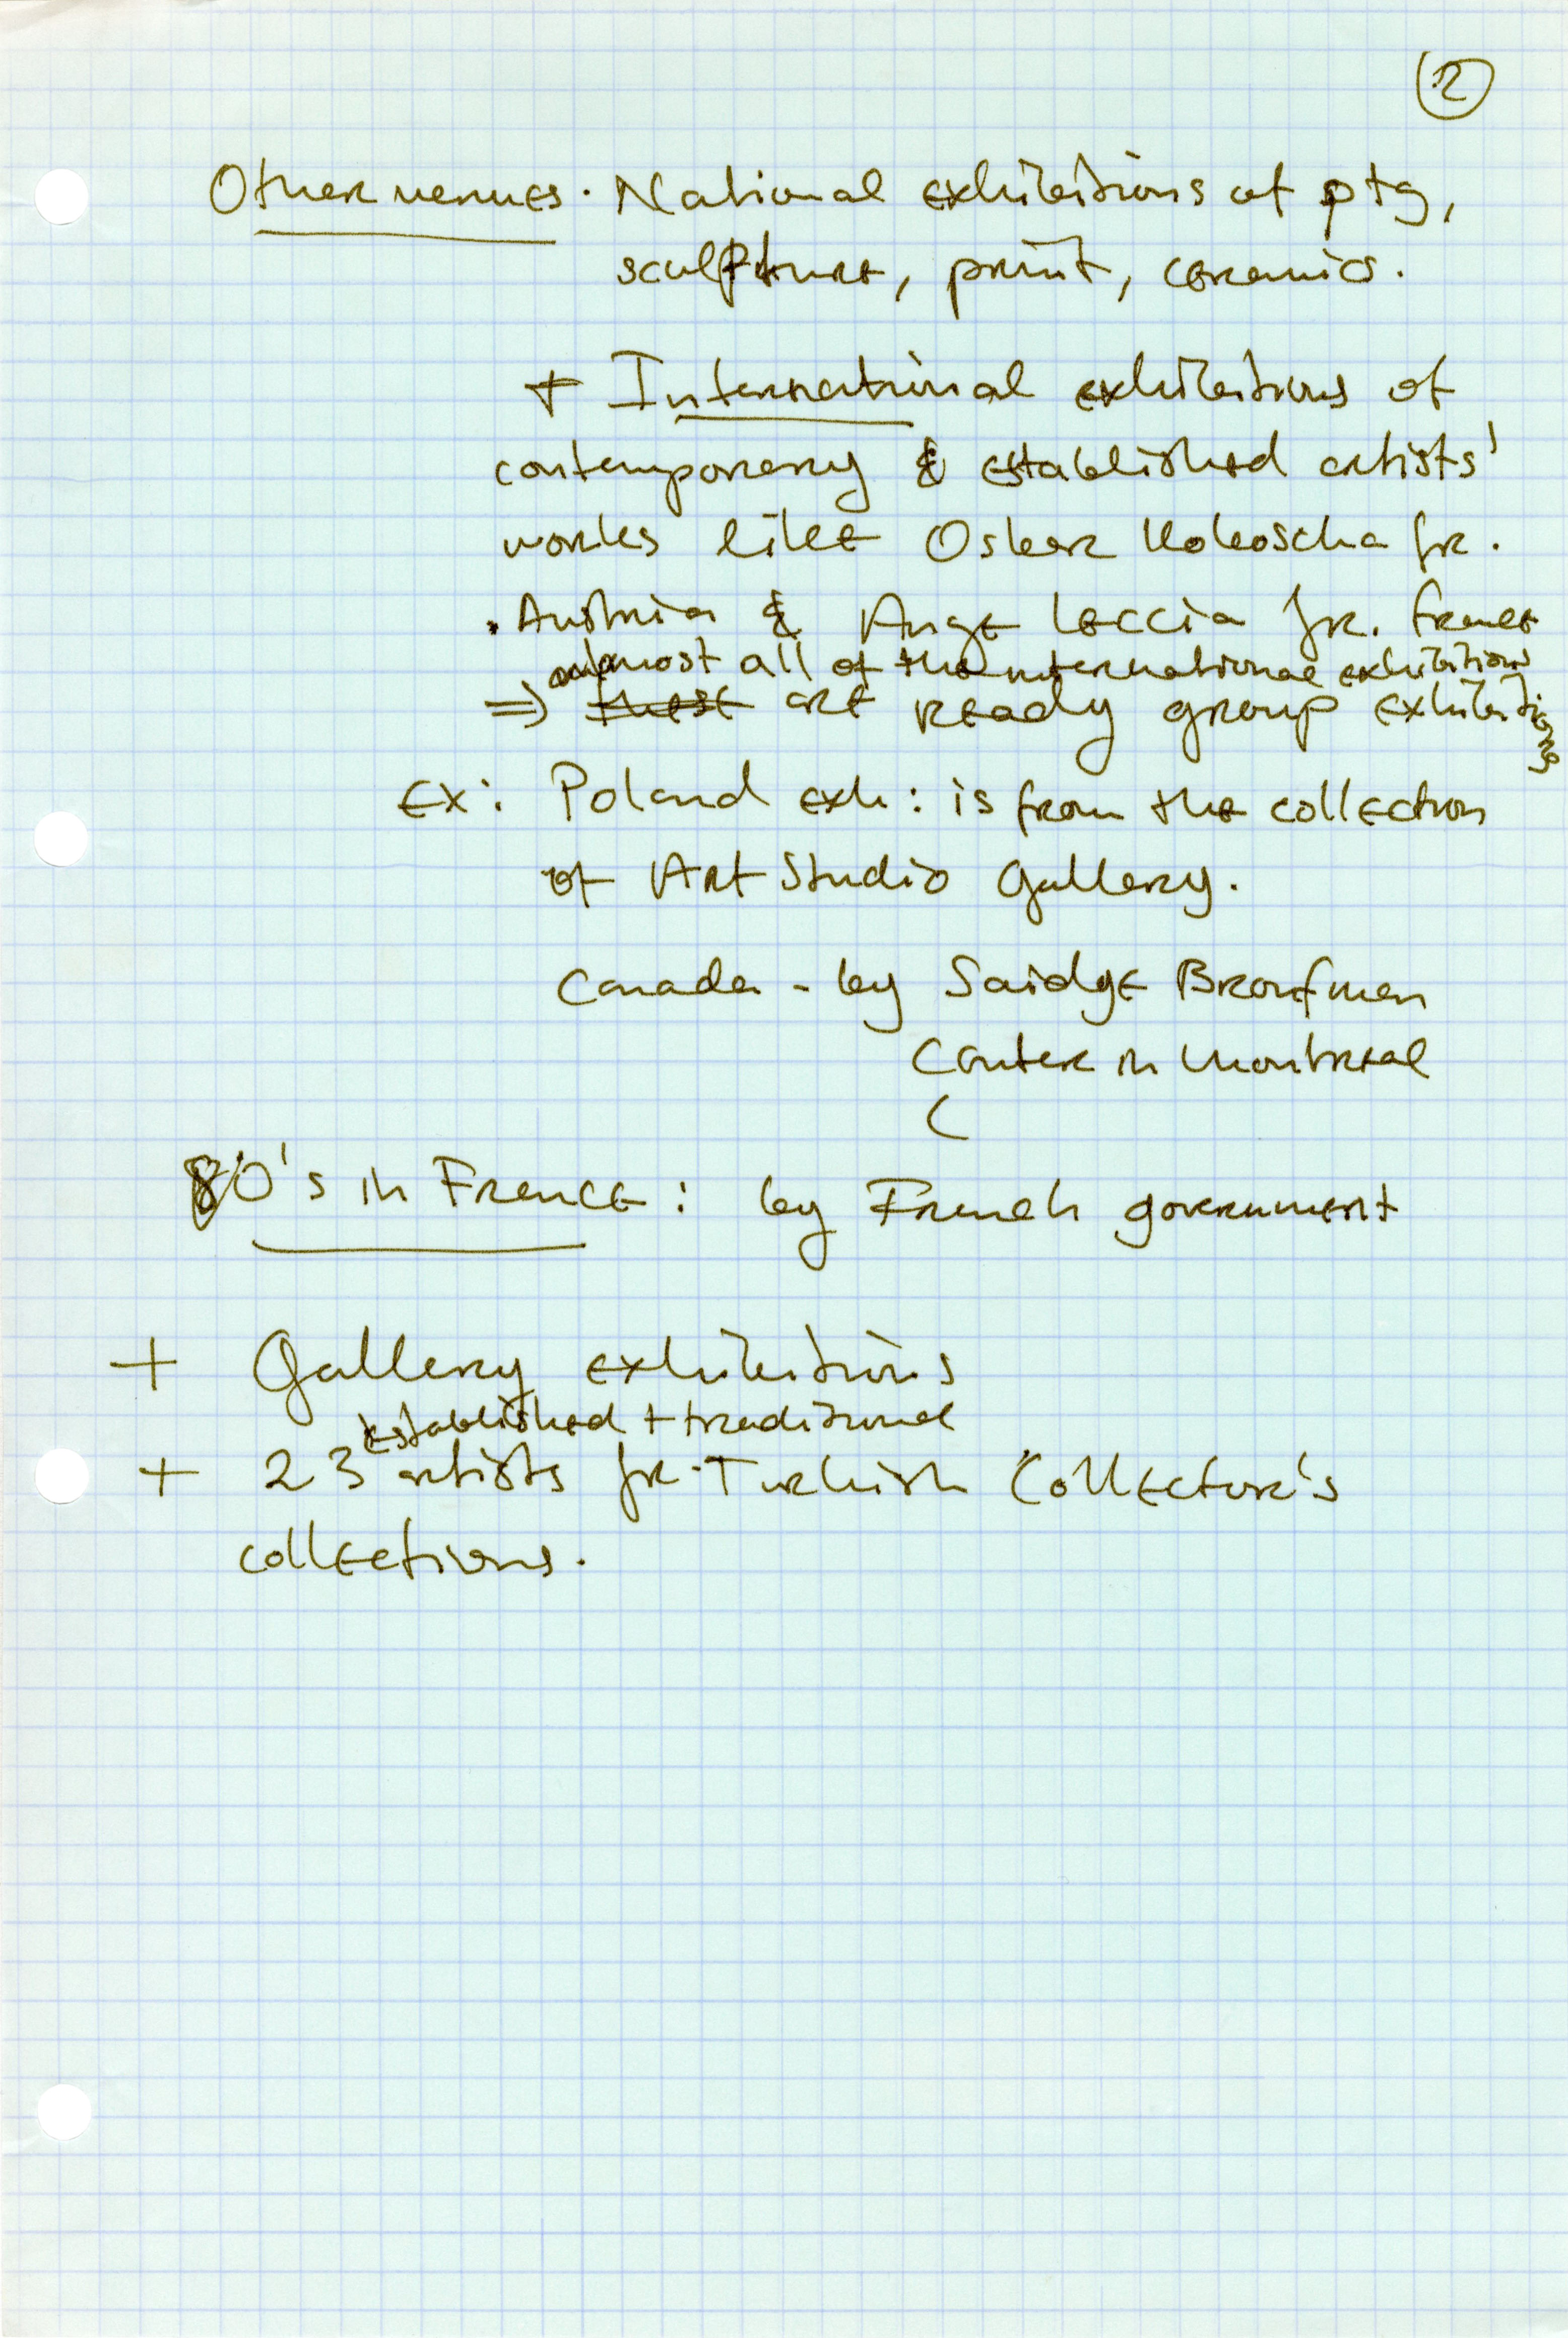 2
Other venues. National exhibitions of ptg,
sculpture, print, ceramics.
+ International exhibitions of
contemporary & established artists'
works like Osker Kokoscha fr.
. Austria & Ange Leccia fr. France
almost all of the international exhibitions
=> these are ready group exhibitions
Ex: Poland exh: is from the collection
of Art Studio Gallery.
Canada - by Saidye Bronfman
Center in Montreal
(
80's in France: by French government
+ Gallery exhibitions
established + traditional
+ 23 artists fr. Turkish Collector's
collections.